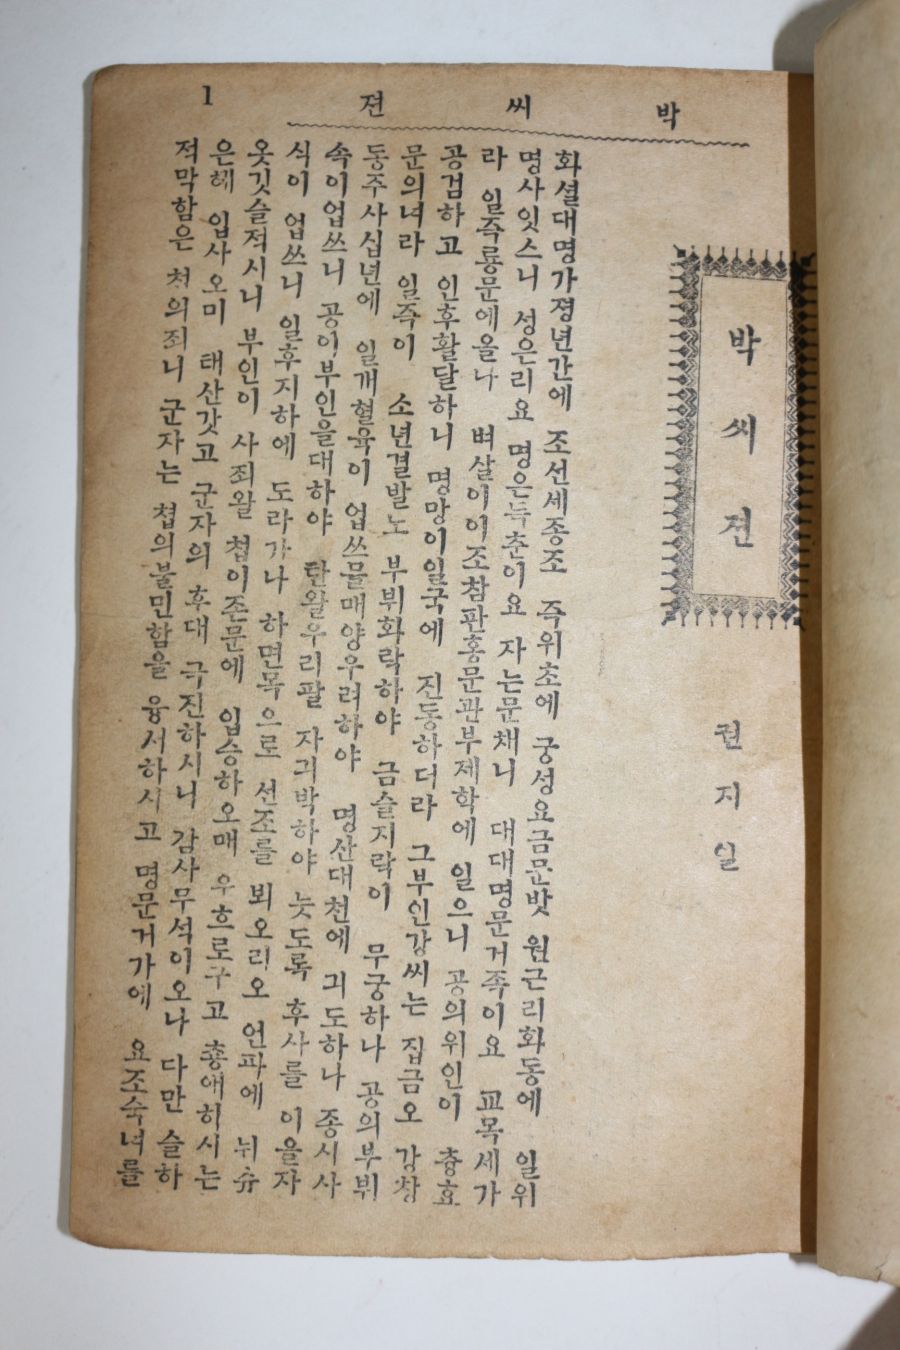 박씨젼
1
박씨젼
권지일
화셜대명가졍년간에 조선세종조 즉위초에 궁성요금문밧 원근리화동에 일위
명사잇스니 성은리요 명은득춘이요 자는문채니 대대명문거족이요 교목세가
라 일즉룡문에올나 벼살이이조참판홍문관부제학에 일으니 공의위인이 츙효
공검하고 인후활달하니 명망이일국에 진동하더라 그부인강씨는 집금오 강창
문의녀라 일즉이 소년결발노 부뷔화락하야 금슬지락이 무궁하나 공의부뷔
동주사십년에 일개혈육이 업쓰믈매양우려하야 명산대쳔에 긔도하나 종시사
속이업쓰니 공이부인을대하야 탄왈우리팔자긔박하야 늣도록 후사를 이을자
식이 업쓰니 일후지하에 도라가나 하면목으로 션조를 뵈오리오 언파에 뉘슈
옷깃슬적시니 부인이 사죄왈 쳡이존문에 입승하오매 우흐로구고 춍애히시는
은헤 입사오미 태산갓고 군자의 후대 극진하시니 감사무석이오나 다만 슬하
적막함은 쳐의죄니 군자는 쳡의불민함을 융서하시고 명문거가에 요조숙녀를